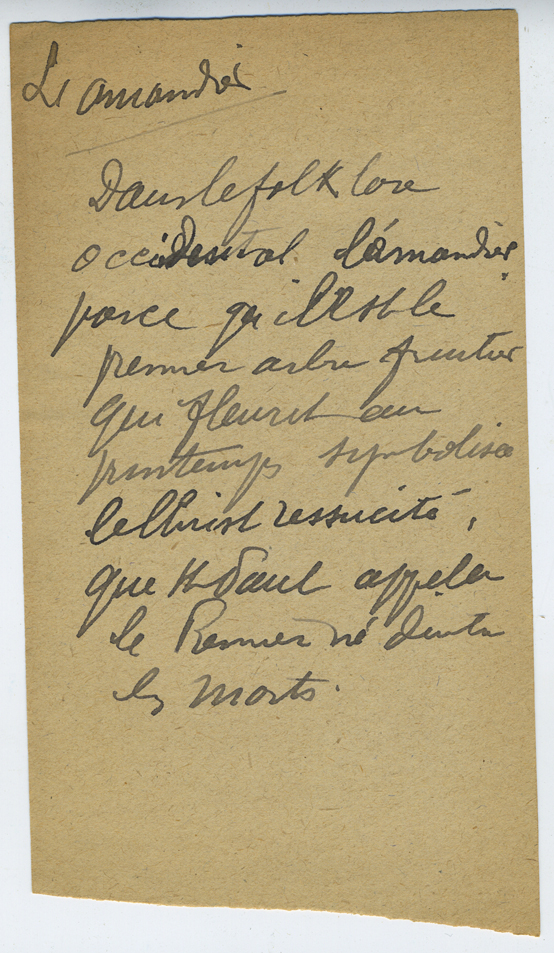 L'amandier
Dans le folklore
occidental l'amandier
parce qu'il est le
premier arbre fruitier
qui fleurit au
printemps symbolise
le Christ ressucité,
que St Paul appelle
le Premier né d'entre
les morts.